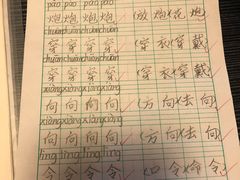 pào pào pào pào
炮 炮 炮 炮 (放炮)(花炮)
chuānchuānchuānchuān
穿 穿 穿 穿 (穿衣)(穿戴)
chuānchuānchuānchuān
穿 穿 穿 穿 (穿衣)(穿戴)
xiàngxiàngxiàngxiàng
向 向 向 向 (方向)(去向)
xiàngxiàngxiàngxiàng
向 向 向 向 (方向)(去向)
lìng lìng lìng lìng
令 令 令 令 (口令)(命令)